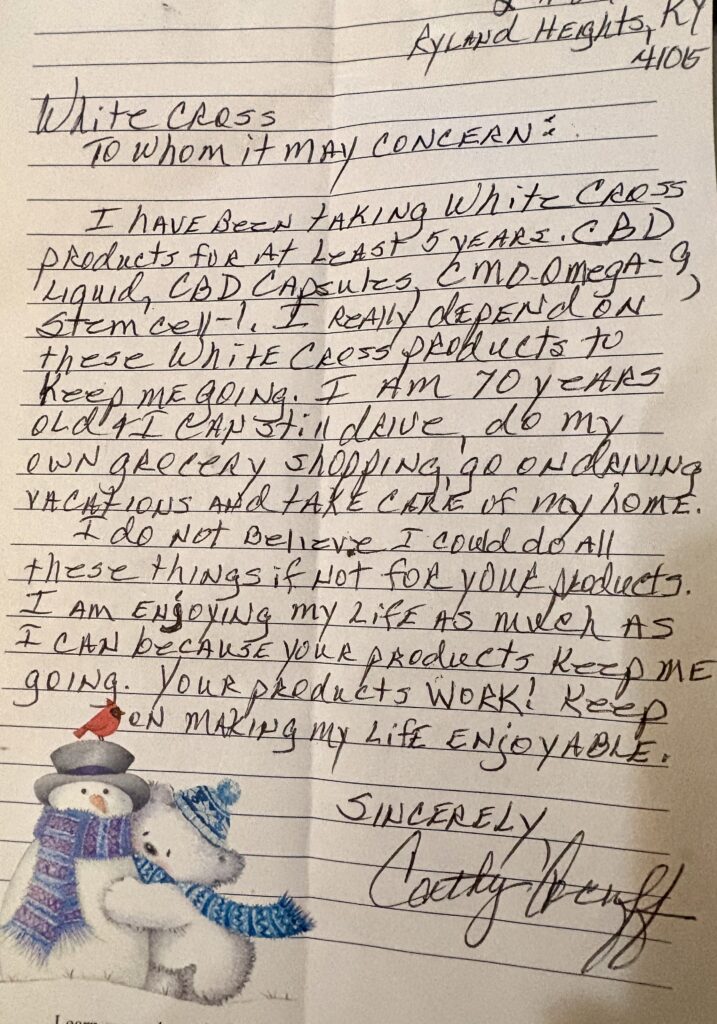 Ryland Heights, KY
41015
White Cross
To whom it may concern:
I have been taking White Cross
products for at least 5 years. CBD
Liquid, CBD Capsules, CMO-Omega-9,
Stem cell-1. I really depend on
these White Cross products to
keep me going. I am 70 years
old & I can still drive, do my
own grocery shopping, go on driving
vacations and take care of my home.
I do not believe I could do all
these things if not for your products.
I am enjoying my life as much as
I can because your products keep me
going. Your products WORK! Keep
on making my life enjoyable.
Sincerely,
Cathy